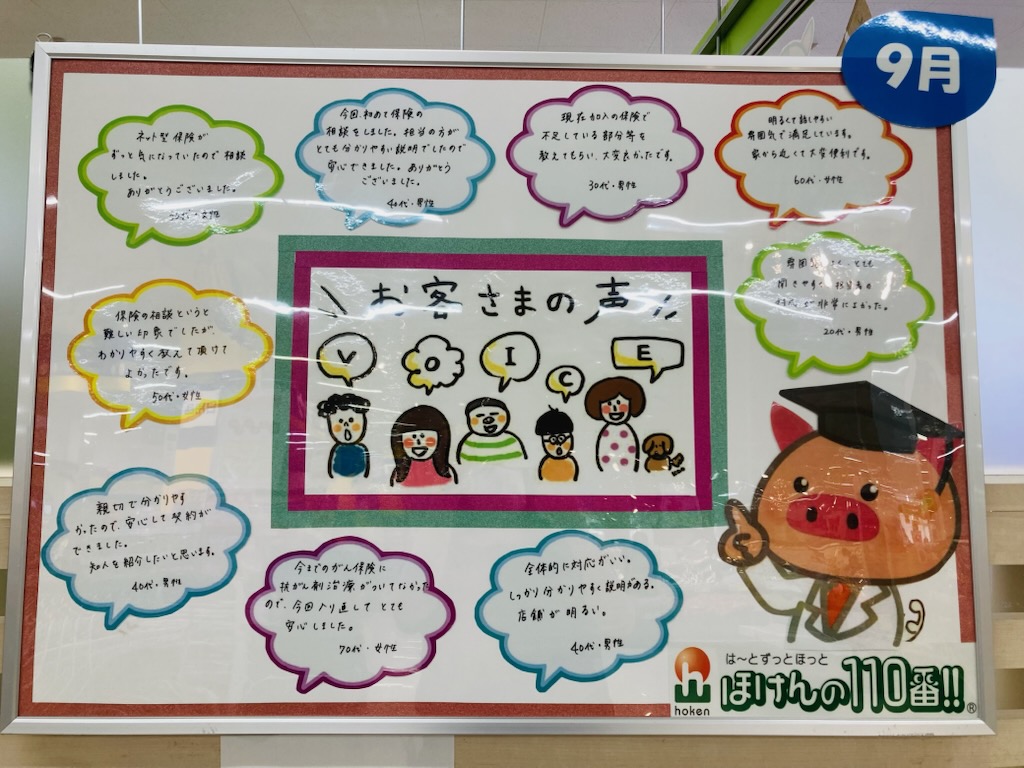 9月
ネット型保険が
ずっと気になっていたので相談
しました。
ありがとうございました。
代・女性
今回、初めて保険の
相談をしました。担当の方が
とても分かりやすい説明でしたので
安心できました。ありがとう
ございました。
40代・男性
現在加入の保険で
不足している部分等を
教えてもらい、大変良かったです。
30代・男性
明るくて話しやすい
雰囲気で満足しています。
家から近くて大変便利です。
60代・女性
保険の相談というと
難しい印象でしたが、
わかりやすく教えて頂けて
よかったです。
50代・女性
お客さまの声
VOICE
とても
非常によかった。
20代・男性
親切で分かりやす
かったので、安心して契約が
できました。
知人を紹介したいと思います。
40代・男性
今までのがん保険に
抗がん剤治療がついてなかった
ので、今回入り直してとても
安心しました。
70代・女性
全体的に対応がいい。
しっかり分かりやすく説明がある。
店舗が明るい。
40代・男性
h
hoken
は〜とずっとほっと
ほけんの110番!!
®